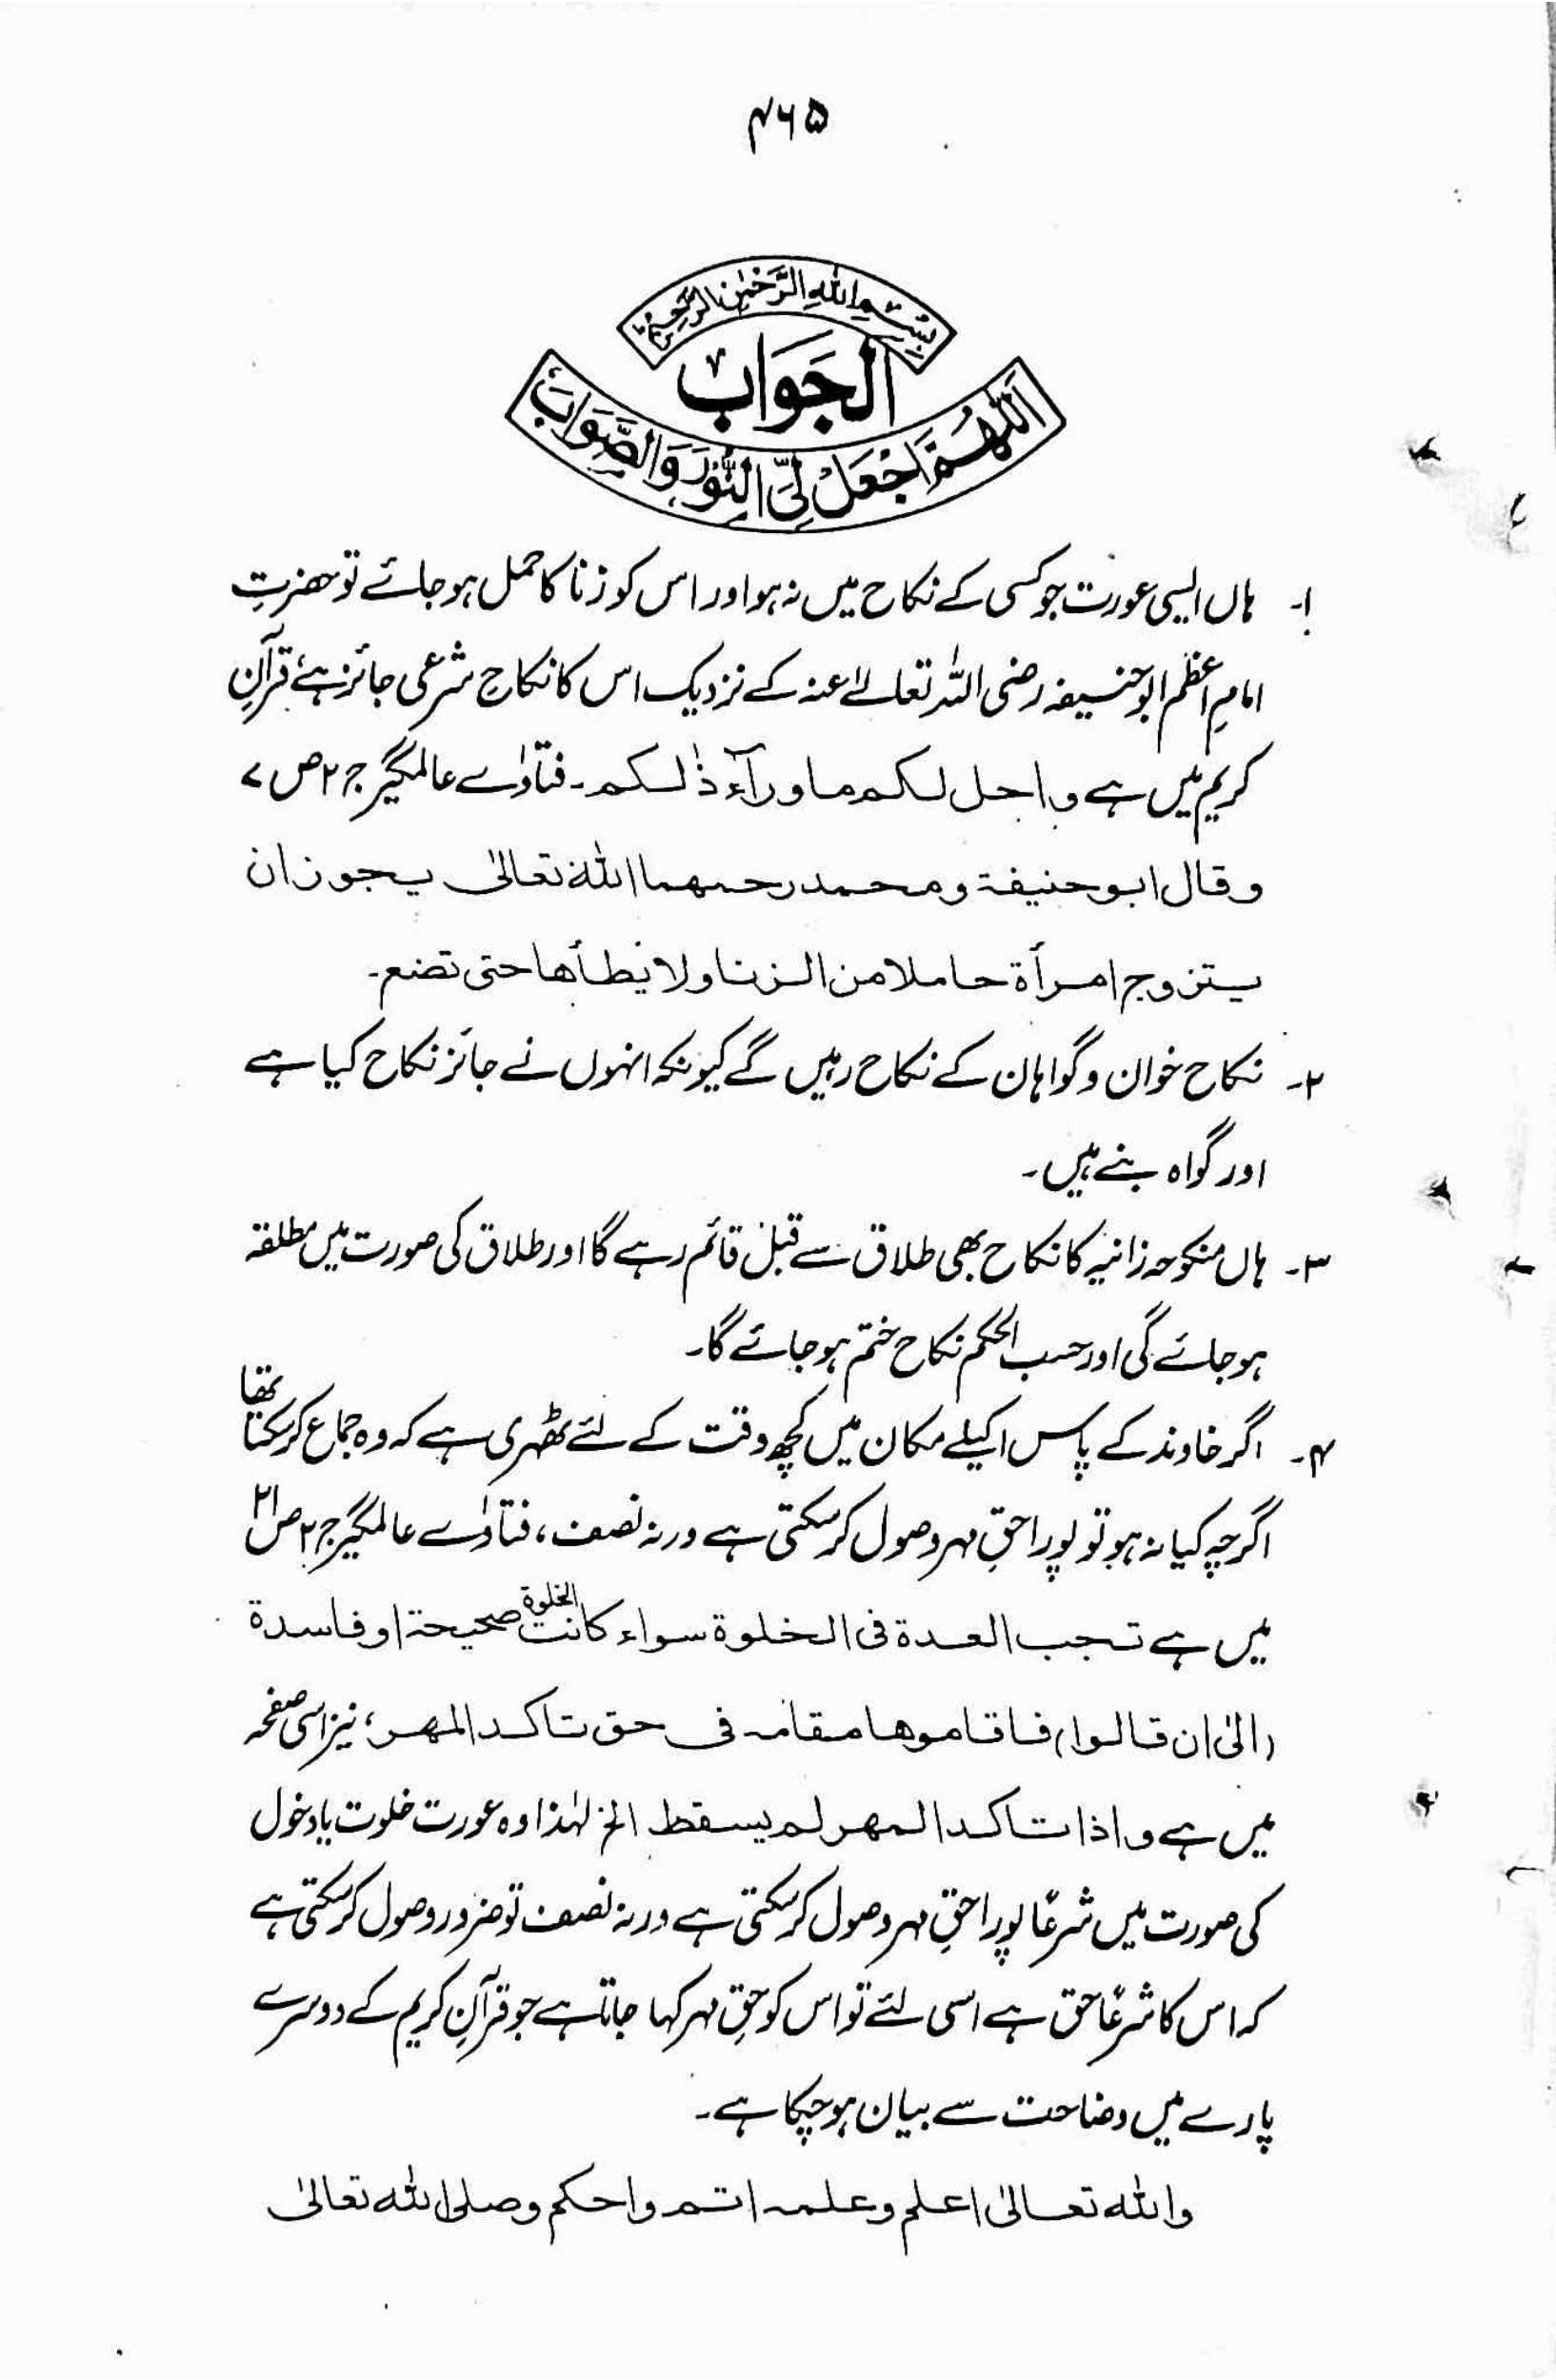 ۴۶۵
بِسْمِ اللهِ الرَّحْمٰنِ الرَّحِيْمِ
اَلجَوَابُ
اَللّٰهُمَّ اجْعَلْ لِيَ النُّوْرَ وَالصَّوَابَ
۱۔ ہاں ایسی عورت جو کسی کے نکاح میں نہ ہو اور اس کو زنا کا حمل ہو جائے تو حضرتِ
امامِ اعظم ابو حنیفہ رضی اللہ تعالےٰ عنہ کے نزدیک اس کا نکاحِ شرعی جائز ہے، قرآنِ
کریم میں ہے واحل لكم ماورآء ذٰلكم۔ فتاوٰے عالمگیر ج ۲ ص ۷
وقال ابو حنيفة ومحمد رحمهما الله تعالىٰ يجوز ان
يتزوج امرأة حاملا من الزنا ولا يطأها حتى تضع۔
۲۔ نکاح خوان و گواہان کے نکاح رہیں گے کیونکہ انہوں نے جائز نکاح کیا ہے
اور گواہ بنے ہیں۔
۳۔ ہاں منکوحہ زانیہ کا نکاح بھی طلاق سے قبل قائم رہے گا اور طلاق کی صورت میں مطلقہ
ہو جائے گی اور حسب الحکم نکاح ختم ہو جائے گا۔
۴۔ اگر خاوند کے پاس اکیلے مکان میں کچھ وقت کے لئے ٹھہری ہے کہ وہ جماع کر سکتا تھا
اگرچہ کیا نہ ہو تو پورا حقِ مہر وصول کر سکتی ہے ورنہ نصف، فتاوٰے عالمگیر ج ۲ ص ۲۱
میں ہے تجب العدة فى الخلوة سواء كانت الخلوة صحيحة او فاسدة
(الىٰ ان قالوا) فاقاموها مقامه فى حق تاكد المهر، نیز اسی صفحہ
میں ہے واذا تاكد المهر لم يسقط الخ لہٰذا وہ عورت خلوت یا دخول
کی صورت میں شرعًا پورا حقِ مہر وصول کر سکتی ہے ورنہ نصف تو ضرور وصول کر سکتی ہے
کہ اس کا شرعًا حق ہے اسی لئے تو اس کو حقِ مہر کہا جاتا ہے جو قرآنِ کریم کے دوسرے
پارے میں وضاحت سے بیان ہو چکا ہے۔
والله تعالىٰ اعلم وعلمه اتم واحكم وصلى الله تعالىٰ